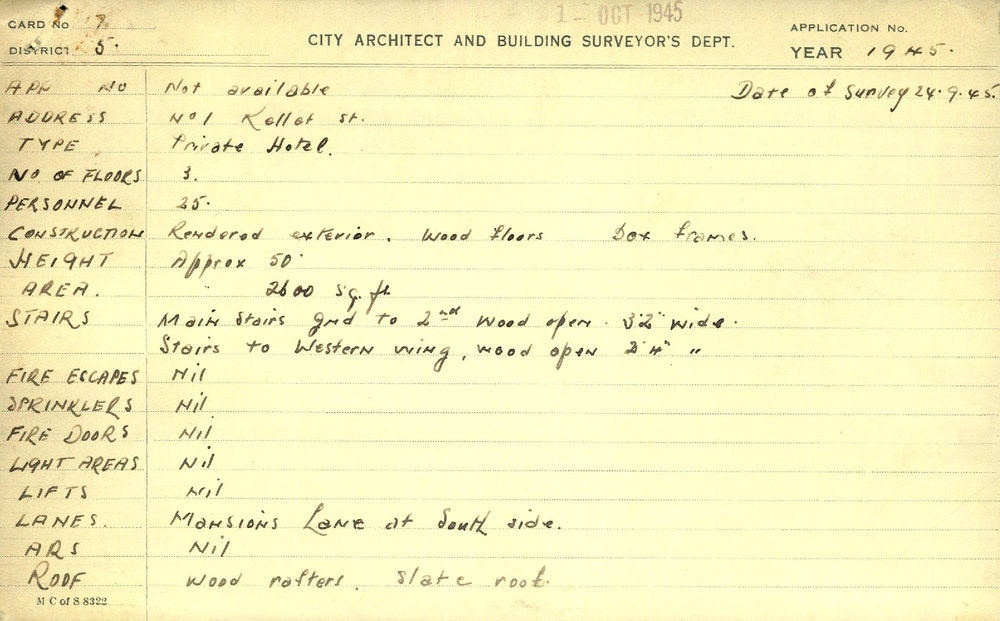 1 - OCT 1945
CARD No 7 APPLICATION No.
DISTRICT 5. CITY ARCHITECT AND BUILDING SURVEYOR'S DEPT. YEAR 1945.
APP NO Not available Date of Survey 24.9.45.
ADDRESS No 1 Kellet st.
TYPE Private Hotel.
NO OF FLOORS 3.
PERSONNEL 25.
CONSTRUCTION Rendered exterior. Wood floors Box frames.
HEIGHT Approx 50'
AREA. " 2600 sq. ft
STAIRS Main Stairs gnd to 2nd Wood open. 3'2" wide.
Stairs to Western wing, wood open 2'4" "
FIRE ESCAPES Nil
SPRINKLERS Nil
FIRE DOORS Nil
LIGHT AREAS Nil
LIFTS Nil
LANES. Mansions Lane at South side.
ARS Nil
ROOF Wood rafters. Slate roof.
M C of S 8322